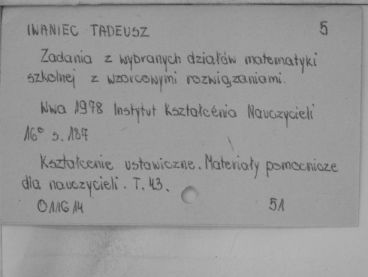 IWANIEC TADEUSZ 5
Zadania z wybranych działów matematyki
szkolnej z wzorcowymi rozwiązaniami.
Wwa 1978 Instytut Kształcenia Nauczycieli
16° s. 187
Kształcenie ustawiczne. Materiały pomocnicze
dla nauczycieli. T. 43.
O11G14 51